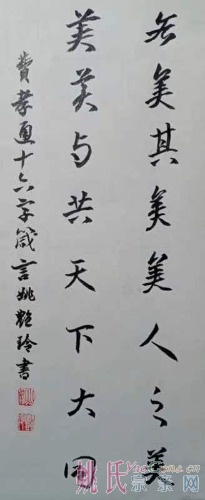 各美其美美人之美
美美与共天下大同
費孝通十六字箴言姚艷玲書
姚氏宗亲网